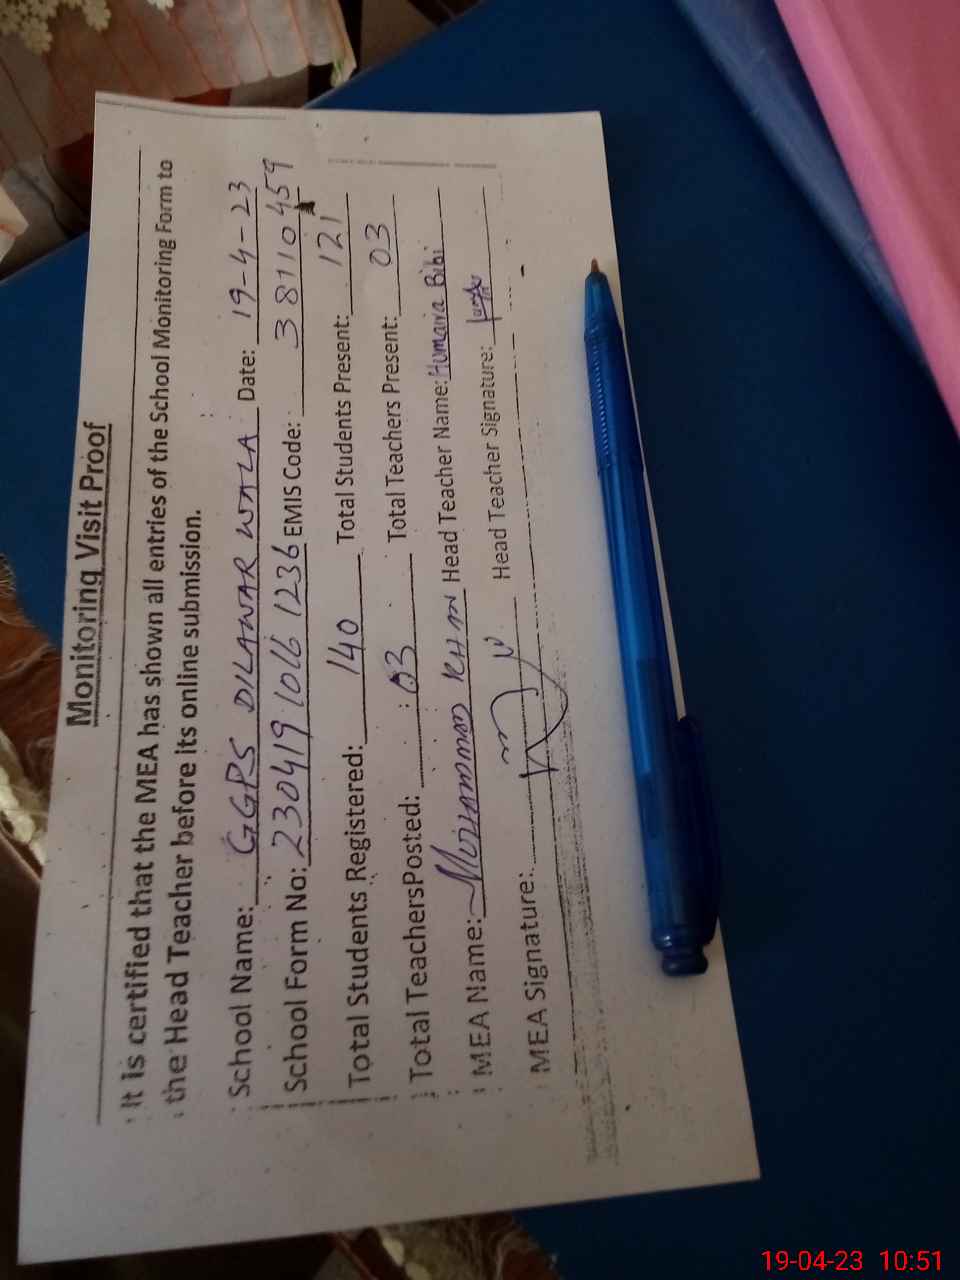 Monitoring Visit Proof
It is certified that the MEA has shown all entries of the School Monitoring Form to
the Head Teacher before its online submission.
School Name: GGPS DILAWAR WALA Date: 19-4-23
School Form No: 2304191016 1236 EMIS Code: 38110459
Total Students Registered: 140 Total Students Present: 121
Total TeachersPosted: 03 Total Teachers Present: 03
MEA Name: MUHAMMAD KHAN Head Teacher Name: Humaira Bibi
MEA Signature: Head Teacher Signature:
19-04-23 10:51